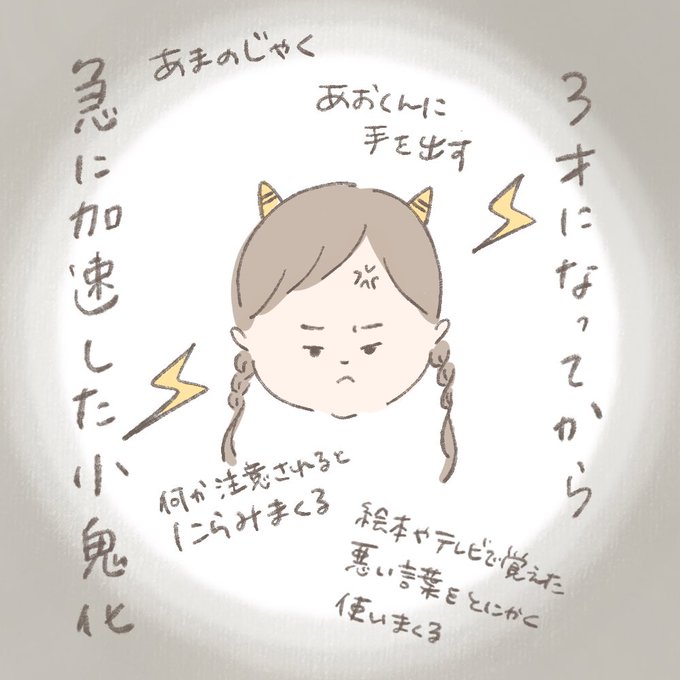 3才になってから
急に加速した小鬼化
あまのじゃく
あおくんに
手を出す
何か注意されると
にらみまくる
絵本やテレビで覚えた
悪い言葉をとにかく
使いまくる